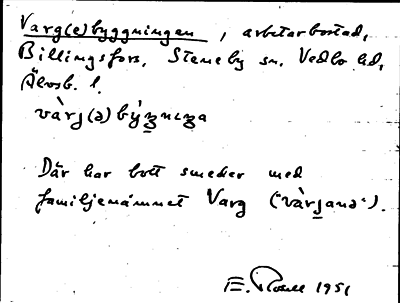 Varg(e)byggningen, arbetarbostad,
Billingsfors, Steneby sn, Vedbo hd,
Älvsb. l.
vàrj(ə)býŋnıŋa
Där har bott smeder med
familjenamnet Varg ("vàrjanə").
E. Rosell 1951